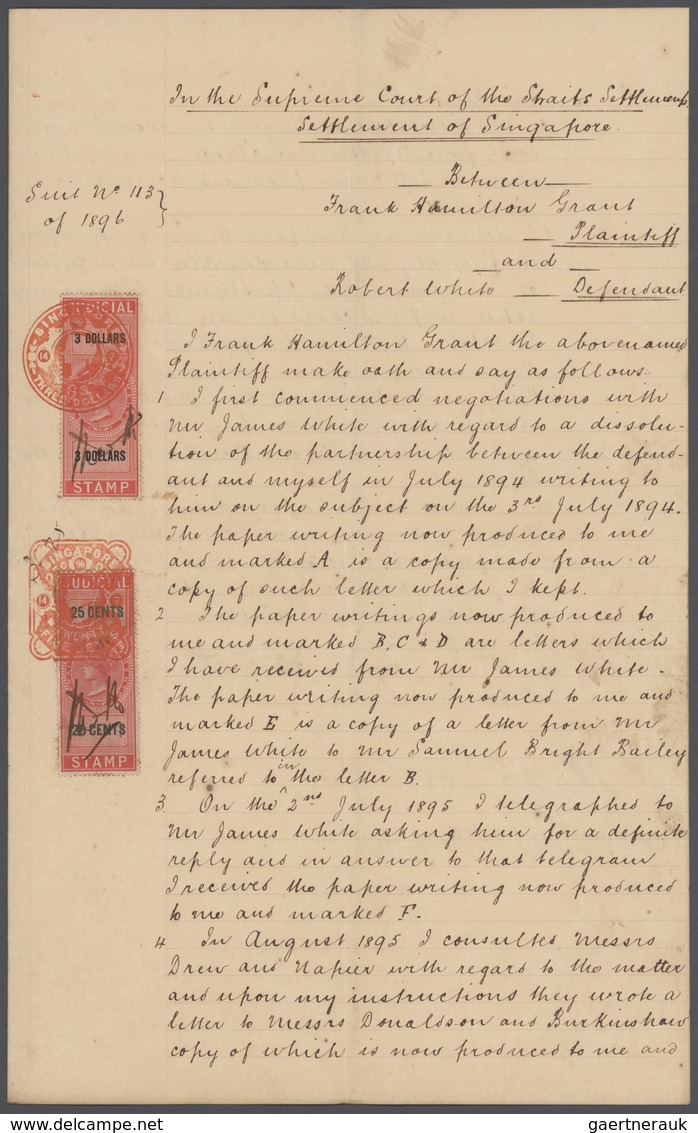 In the Supreme Court of the Straits Settlements
Settlement of Singapore.
Suit No 113
of 1896
Between
Frank Hamilton Grant
Plaintiff
and
Robert White Defendant
I Frank Hamilton Grant the abovenamed
Plaintiff make oath and say as follows:
1 I first commenced negotiations with
Mr James White with regard to a dissolu-
tion of the partnership between the defend-
ant and myself in July 1894 writing to
him on the subject on the 3rd July 1894.
The paper writing now produced to me
and marked A is a copy made from a
copy of such letter which I kept.
2 The paper writings now produced to
me and marked B, C & D are letters which
I have received from Mr James White.
The paper writing now produced to me and
marked E is a copy of a letter from Mr
James White to Mr Samuel Bright Bailey
referred to in the letter B.
3. On the 2nd July 1895 I telegraphed to
Mr James White asking him for a definite
reply and in answer to that telegram
I received the paper writing now produced
to me and marked F.
4 In August 1895 I consulted Messrs
Drew and Napier with regard to the matter
and upon my instructions they wrote a
letter to Messrs Donaldson and Burkinshaw
copy of which is now produced to me and
JUDICIAL
3 DOLLARS
3 DOLLARS
STAMP
SINGAPORE
JUDICIAL
25 CENTS
CENTS
STAMP
gaertnerauk